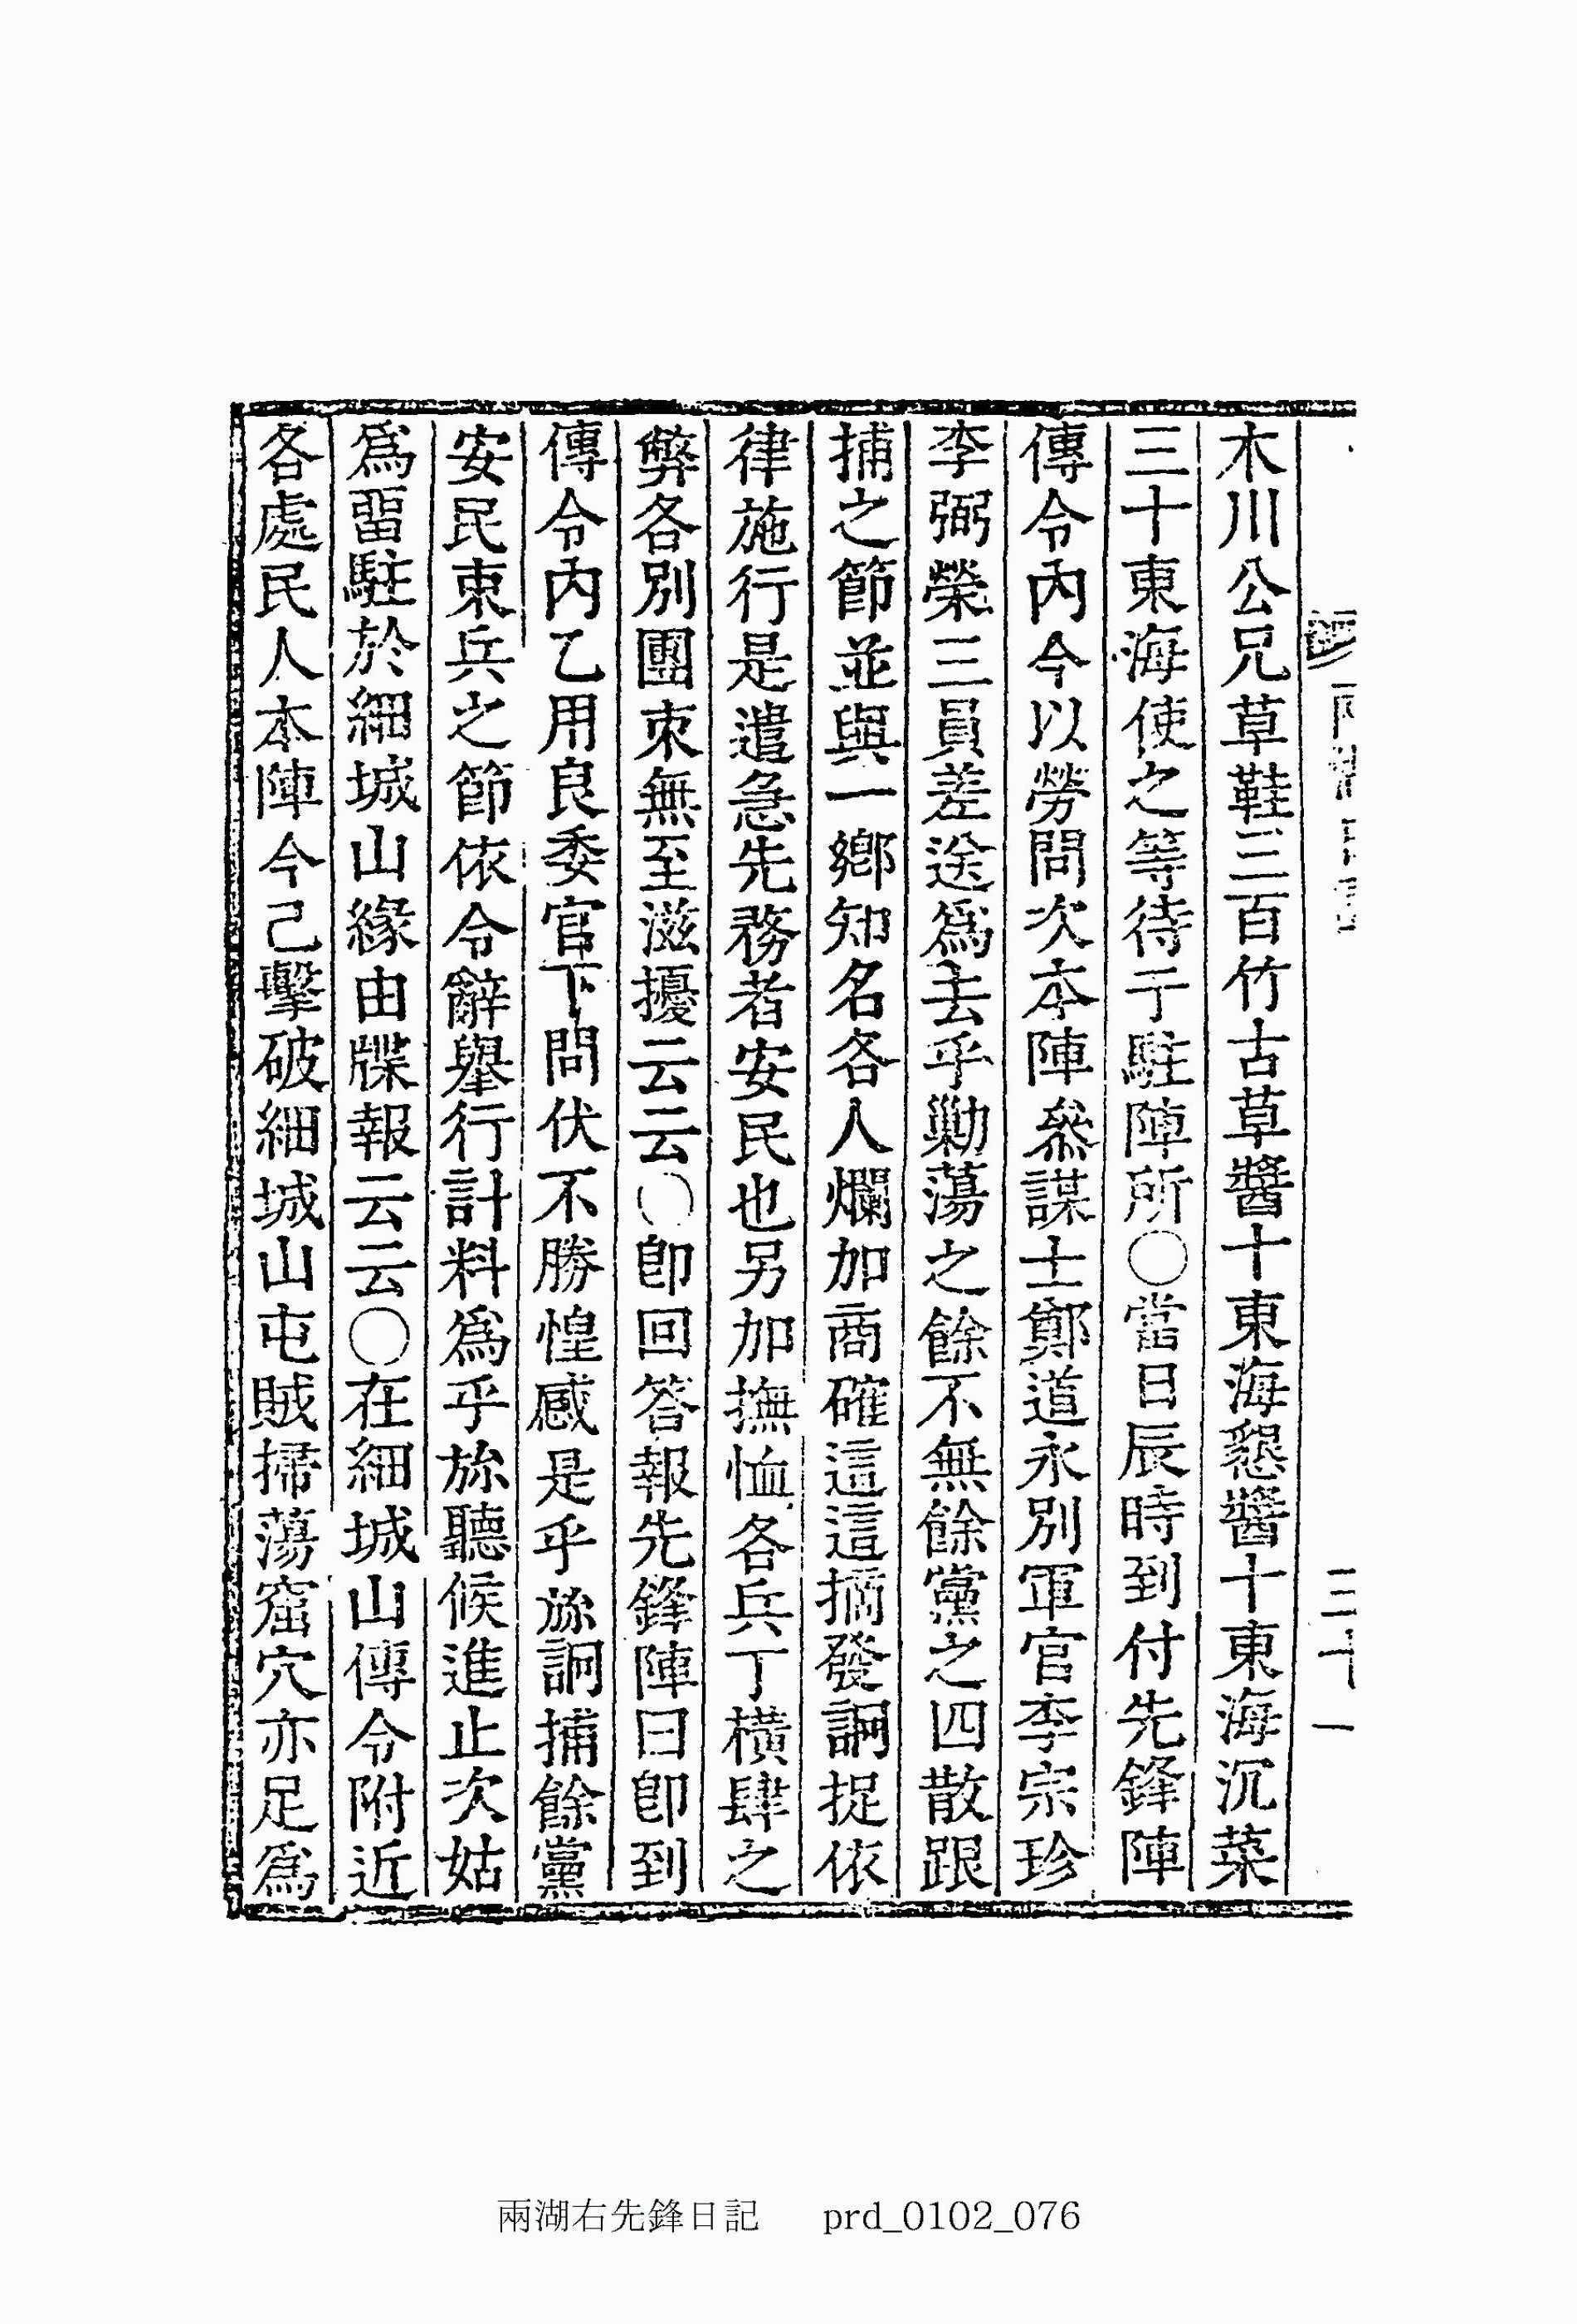 三十一
木川公兄草鞋三百竹古草醬十東海懇醬十東海沉菜
三十東海使之等待于駐陣所〇當日辰時到付先鋒陣
傳令內今以勞問次本陣叅謀士鄭道永別軍官李宗珍
李弼榮三員差送爲去乎勦蕩之餘不無餘黨之四散跟
捕之節並與一鄕知名各人爛加商確這這摘發詗捉依
律施行是遣急先務者安民也另加撫恤各兵丁橫肆之
弊各別團束無至滋擾云云〇卽回答報先鋒陣曰卽到
傳令內乙用良委官下問伏不勝惶感是乎旀詗捕餘黨
安民束兵之節依令辭擧行計料爲乎旀聽候進止次姑
爲留駐於細城山緣由牒報云云〇在細城山傳令附近
各處民人本陣今己擊破細城山屯賊掃蕩窟穴亦足爲
兩湖右先鋒日記 prd_0102_076